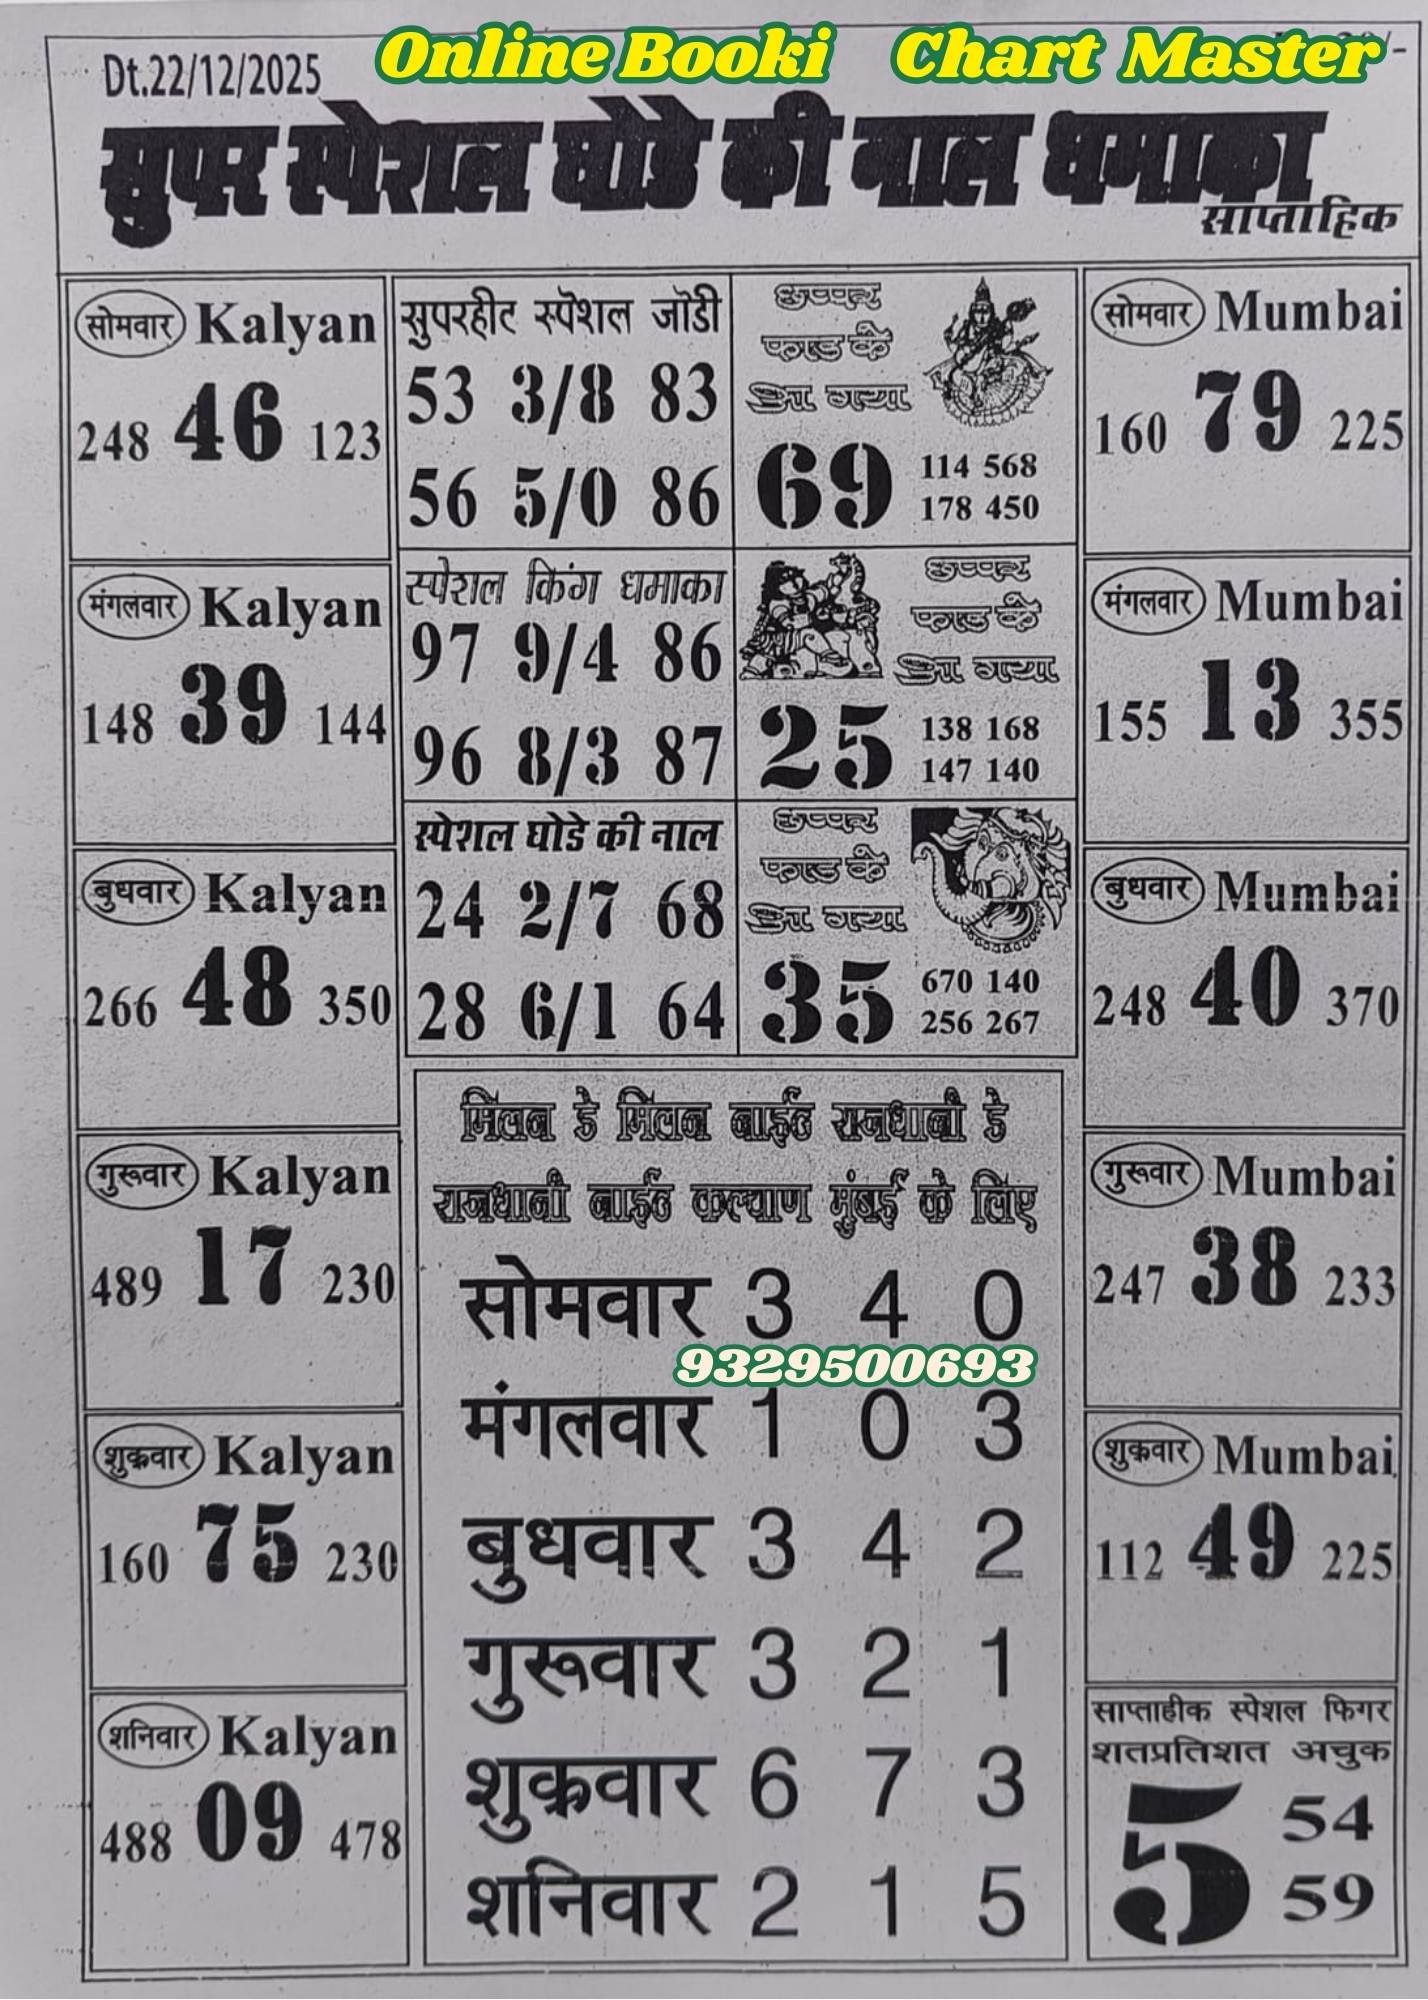 Online Booki Chart Master
Dt.22/12/2025
सुपर स्पेशल घोडे की नाल धमाका
साप्ताहिक
सोमवार Kalyan
248 46 123
मंगलवार Kalyan
148 39 144
बुधवार Kalyan
266 48 350
गुरूवार Kalyan
489 17 230
शुक्रवार Kalyan
160 75 230
शनिवार Kalyan
488 09 478
सुपरहीट स्पेशल जोडी
53 3/8 83
56 5/0 86
स्पेशल किंग धमाका
97 9/4 86
96 8/3 87
स्पेशल घोडे की नाल
24 2/7 68
28 6/1 64
छप्पर
फाड के
आ गया
69
114 568
178 450
छप्पर
फाड के
आ गया
25
138 168
147 140
छप्पर
फाड के
आ गया
35
670 140
256 267
मिलन डे मिलन नाईट राजधानी डे
राजधानी नाईट कल्याण मुंबई के लिए
सोमवार 3 4 0
9329500693
मंगलवार 1 0 3
बुधवार 3 4 2
गुरूवार 3 2 1
शुक्रवार 6 7 3
शनिवार 2 1 5
सोमवार Mumbai
160 79 225
मंगलवार Mumbai
155 13 355
बुधवार Mumbai
248 40 370
गुरूवार Mumbai
247 38 233
शुक्रवार Mumbai
112 49 225
साप्ताहीक स्पेशल फिगर
शतप्रतिशत अचुक
5
54
59